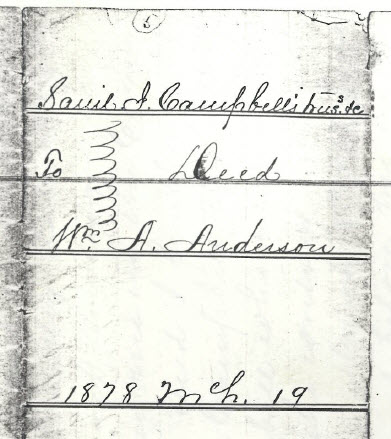 5
Sam'l J. Campbell's trus. &c
To Deed
Wm A. Anderson
1878 Mch. 19